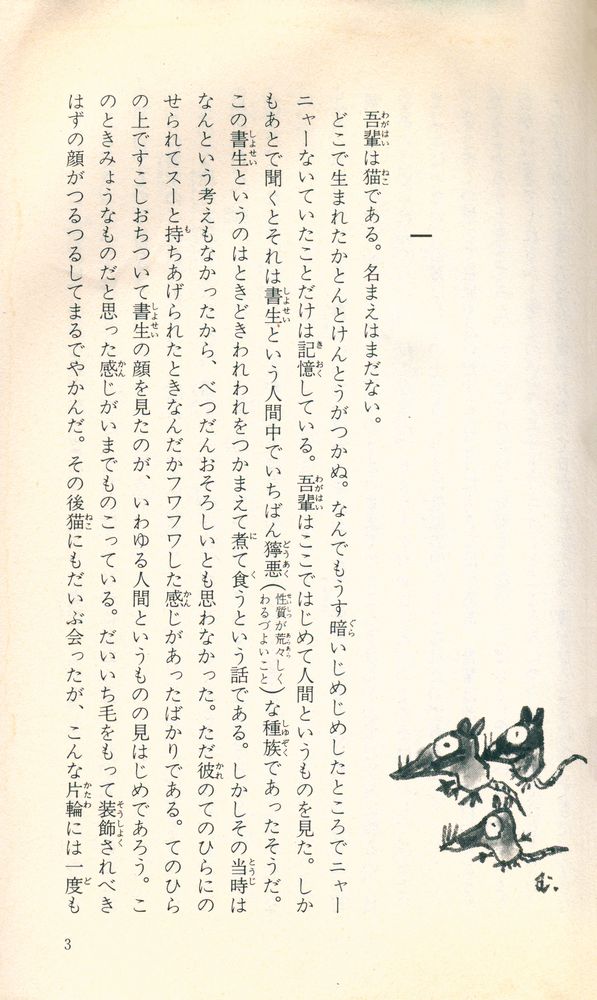 一
吾輩は猫である。名まえはまだない。
どこで生まれたかとんとけんとうがつかぬ。なんでもうす暗いじめじめしたところでニャー
ニャーないていたことだけは記憶している。吾輩はここではじめて人間というものを見た。しか
もあとで聞くとそれは書生という人間中でいちばん獰悪(性質が荒々しくわるづよいこと)な種族であったそうだ。
この書生というのはときどきわれわれをつかまえて煮て食うという話である。しかしその当時は
なんという考えもなかったから、べつだんおそろしいとも思わなかった。ただ彼のてのひらにの
せられてスーと持ちあげられたときなんだかフワフワした感じがあったばかりである。てのひら
の上ですこしおちついて書生の顔を見たのが、いわゆる人間というものの見はじめであろう。こ
のときみょうなものだと思った感じがいまでものこっている。だいいち毛をもって装飾されべき
はずの顔がつるつるしてまるでやかんだ。その後猫にもだいぶ会ったが、こんな片輪には一度も
む.
3